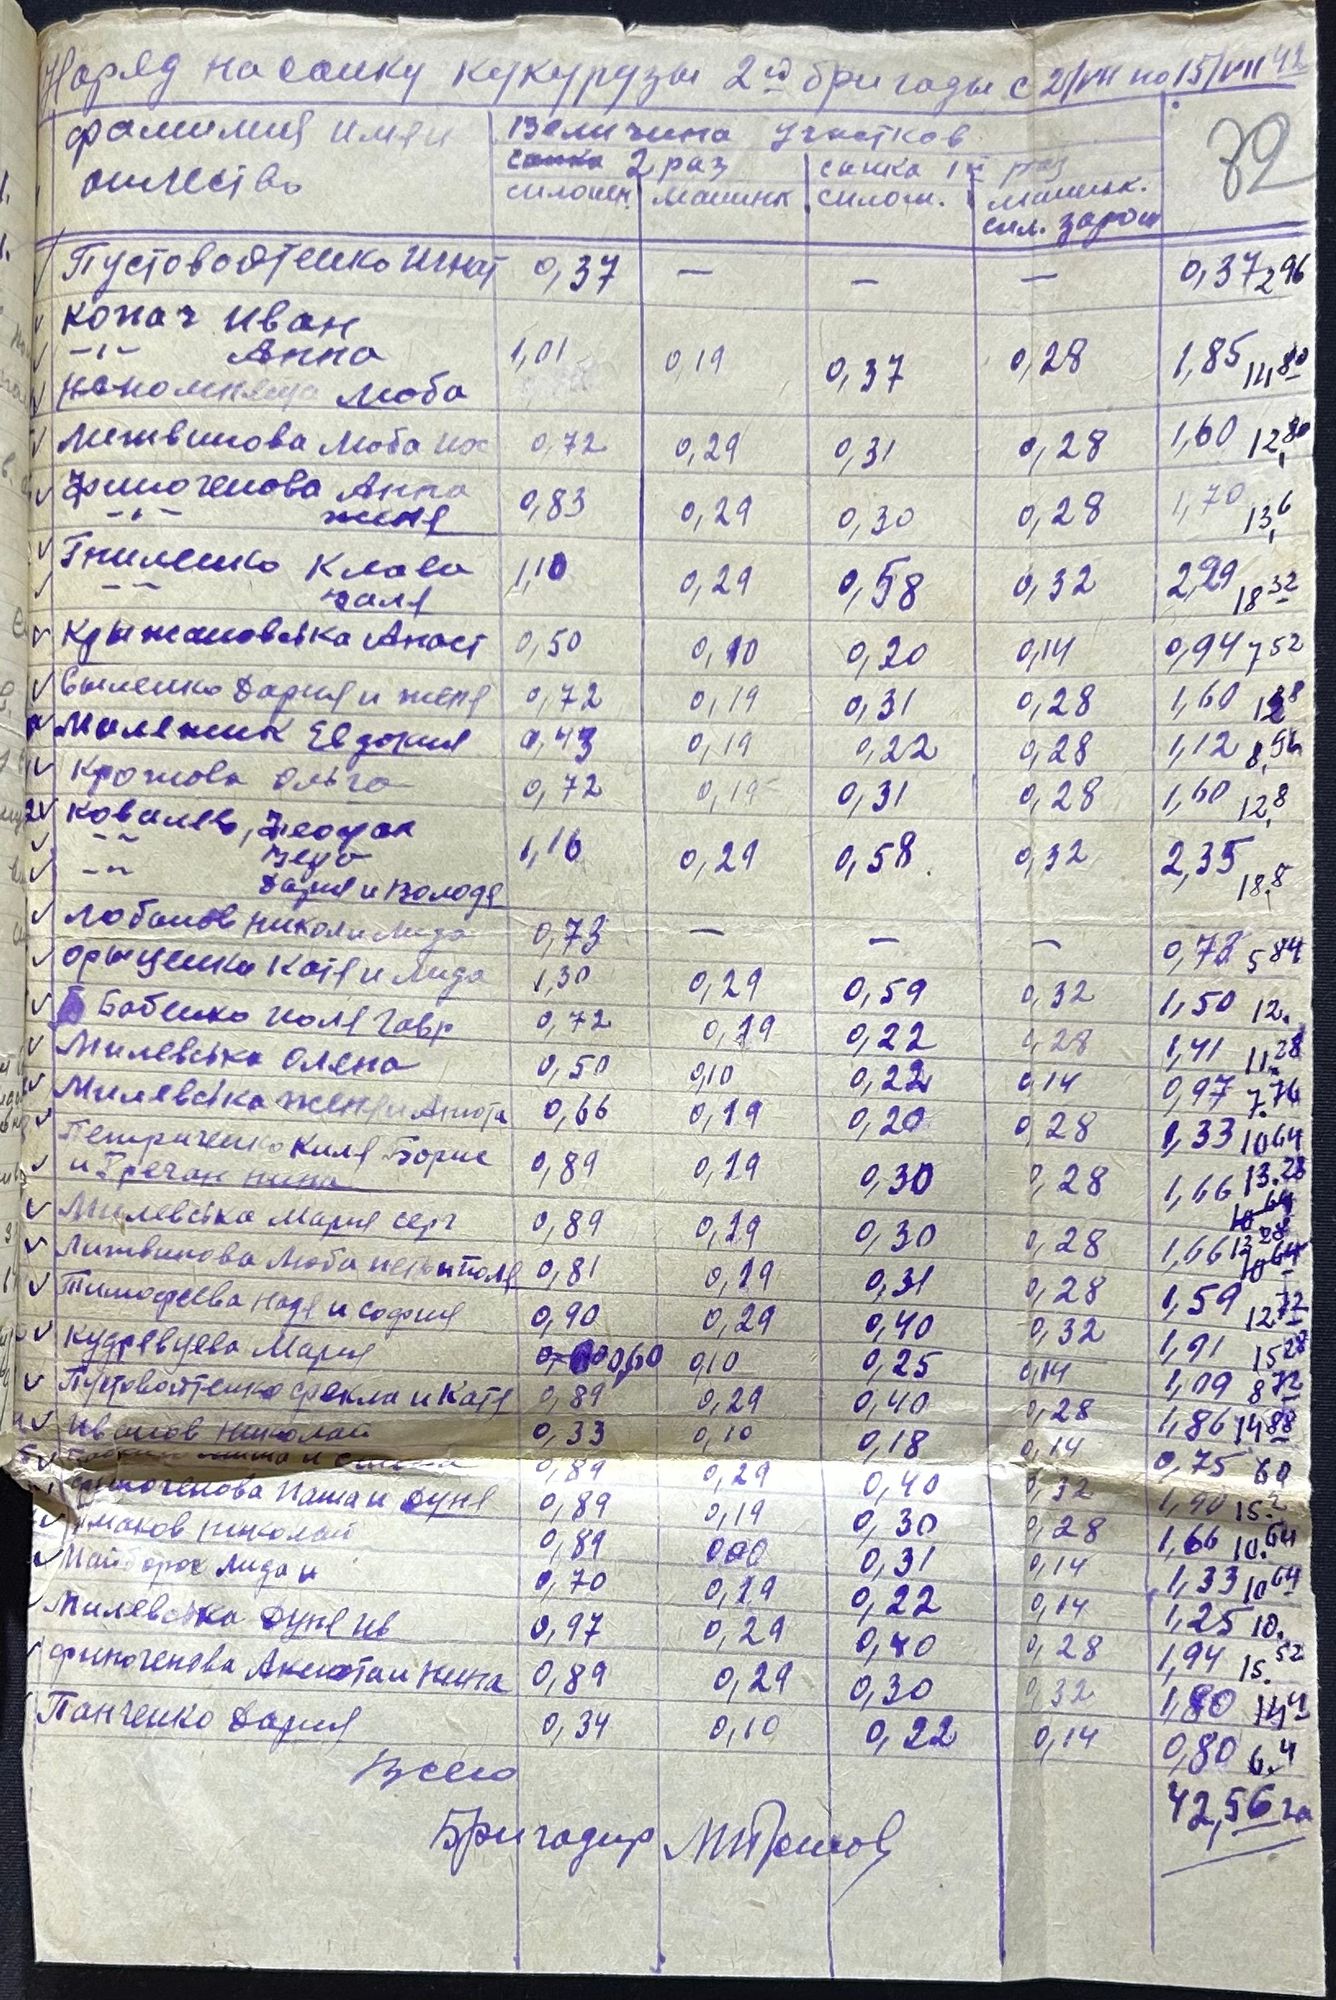 Наряд на сапку кукурузы 2й бригады с 2/VII по 15/VII 42
фамилия имя и отчество
Величина участков
72
сапка 2 раз сапка 1й раз
силосн. машинк силосн. машинк. сил. зарош
Пустовойтенко Игнат 0,37 — — — 0,37 2 96
Копач Иван
-"- Анна 1,01 0,19 0,37 0,28 1,85 14 80
Люба
Литвинова Люба 0,72 0,29 0,31 0,28 1,60 12,80
Финогенова Анна 0,83 0,29 0,30 0,28 1,70 13,6
-"- женя
Гниленко Клава 1,10 0,29 0,58 0,32 2,29 18 32
-"- Валя
Крыжановська Анаст 0,50 0,10 0,20 0,14 0,94 7 52
Дария и женя 0,72 0,19 0,31 0,28 1,60 12 8
Мележик Евдокия 0,43 0,19 0,22 0,28 1,12 8,96
Ольга 0,72 0,19 0,31 0,28 1,60 12,8
Ковалев,
-"- 1,16 0,29 0,58 0,32 2,35 18,8
-"- Дария и Володя
Лобанов Никол и Лида 0,73 — — — 0,73 5 84
Катя и Лида 1,30 0,29 0,59 0,32 1,50 12.
Бабенко Поля Гавр 0,72 0,19 0,22 0,28 1,41 11.28
Милевська Олена 0,50 0,10 0,22 0,14 0,97 7.76
Милевська женя и Анюта 0,66 0,19 0,20 0,28 1,33 10 64
Петриченко Киля Борис
и Гречан нина 0,89 0,19 0,30 0,28 1,66 13.28
10 64
Милевська Мария серг 0,89 0,19 0,30 0,28 1,66 13 28
10 64
Литвинова Люба 0,81 0,19 0,31 0,28 1,59 12 72
Тимофеева Надя и София 0,90 0,29 0,40 0,32 1,91 15 28
Кудрявцева Мария 0,60 0,10 0,25 0,14 1,09 8 72
Пустовойтенко фекла и Катя 0,89 0,29 0,40 0,28 1,86 14 88
Иванов Николай 0,33 0,10 0,18 0,14 0,75 60
0,89 0,29 0,40 0,32 1,90 15.2
финогенова Паша и Дуня 0,89 0,19 0,30 0,28 1,66 10.64
николай 0,89 000 0,31 0,14 1,33 10 64
Майборос Лида и 0,70 0,19 0,22 0,14 1,25 10.
Милевська Дуня Ив 0,97 0,29 0,40 0,28 1,94 15.52
финогенова Аксюта и Нина 0,89 0,29 0,30 0,32 1,80 14 4
Панченко Дария 0,34 0,10 0,22 0,14 0,80 6.4
Всего 42,56 га
Бригадир